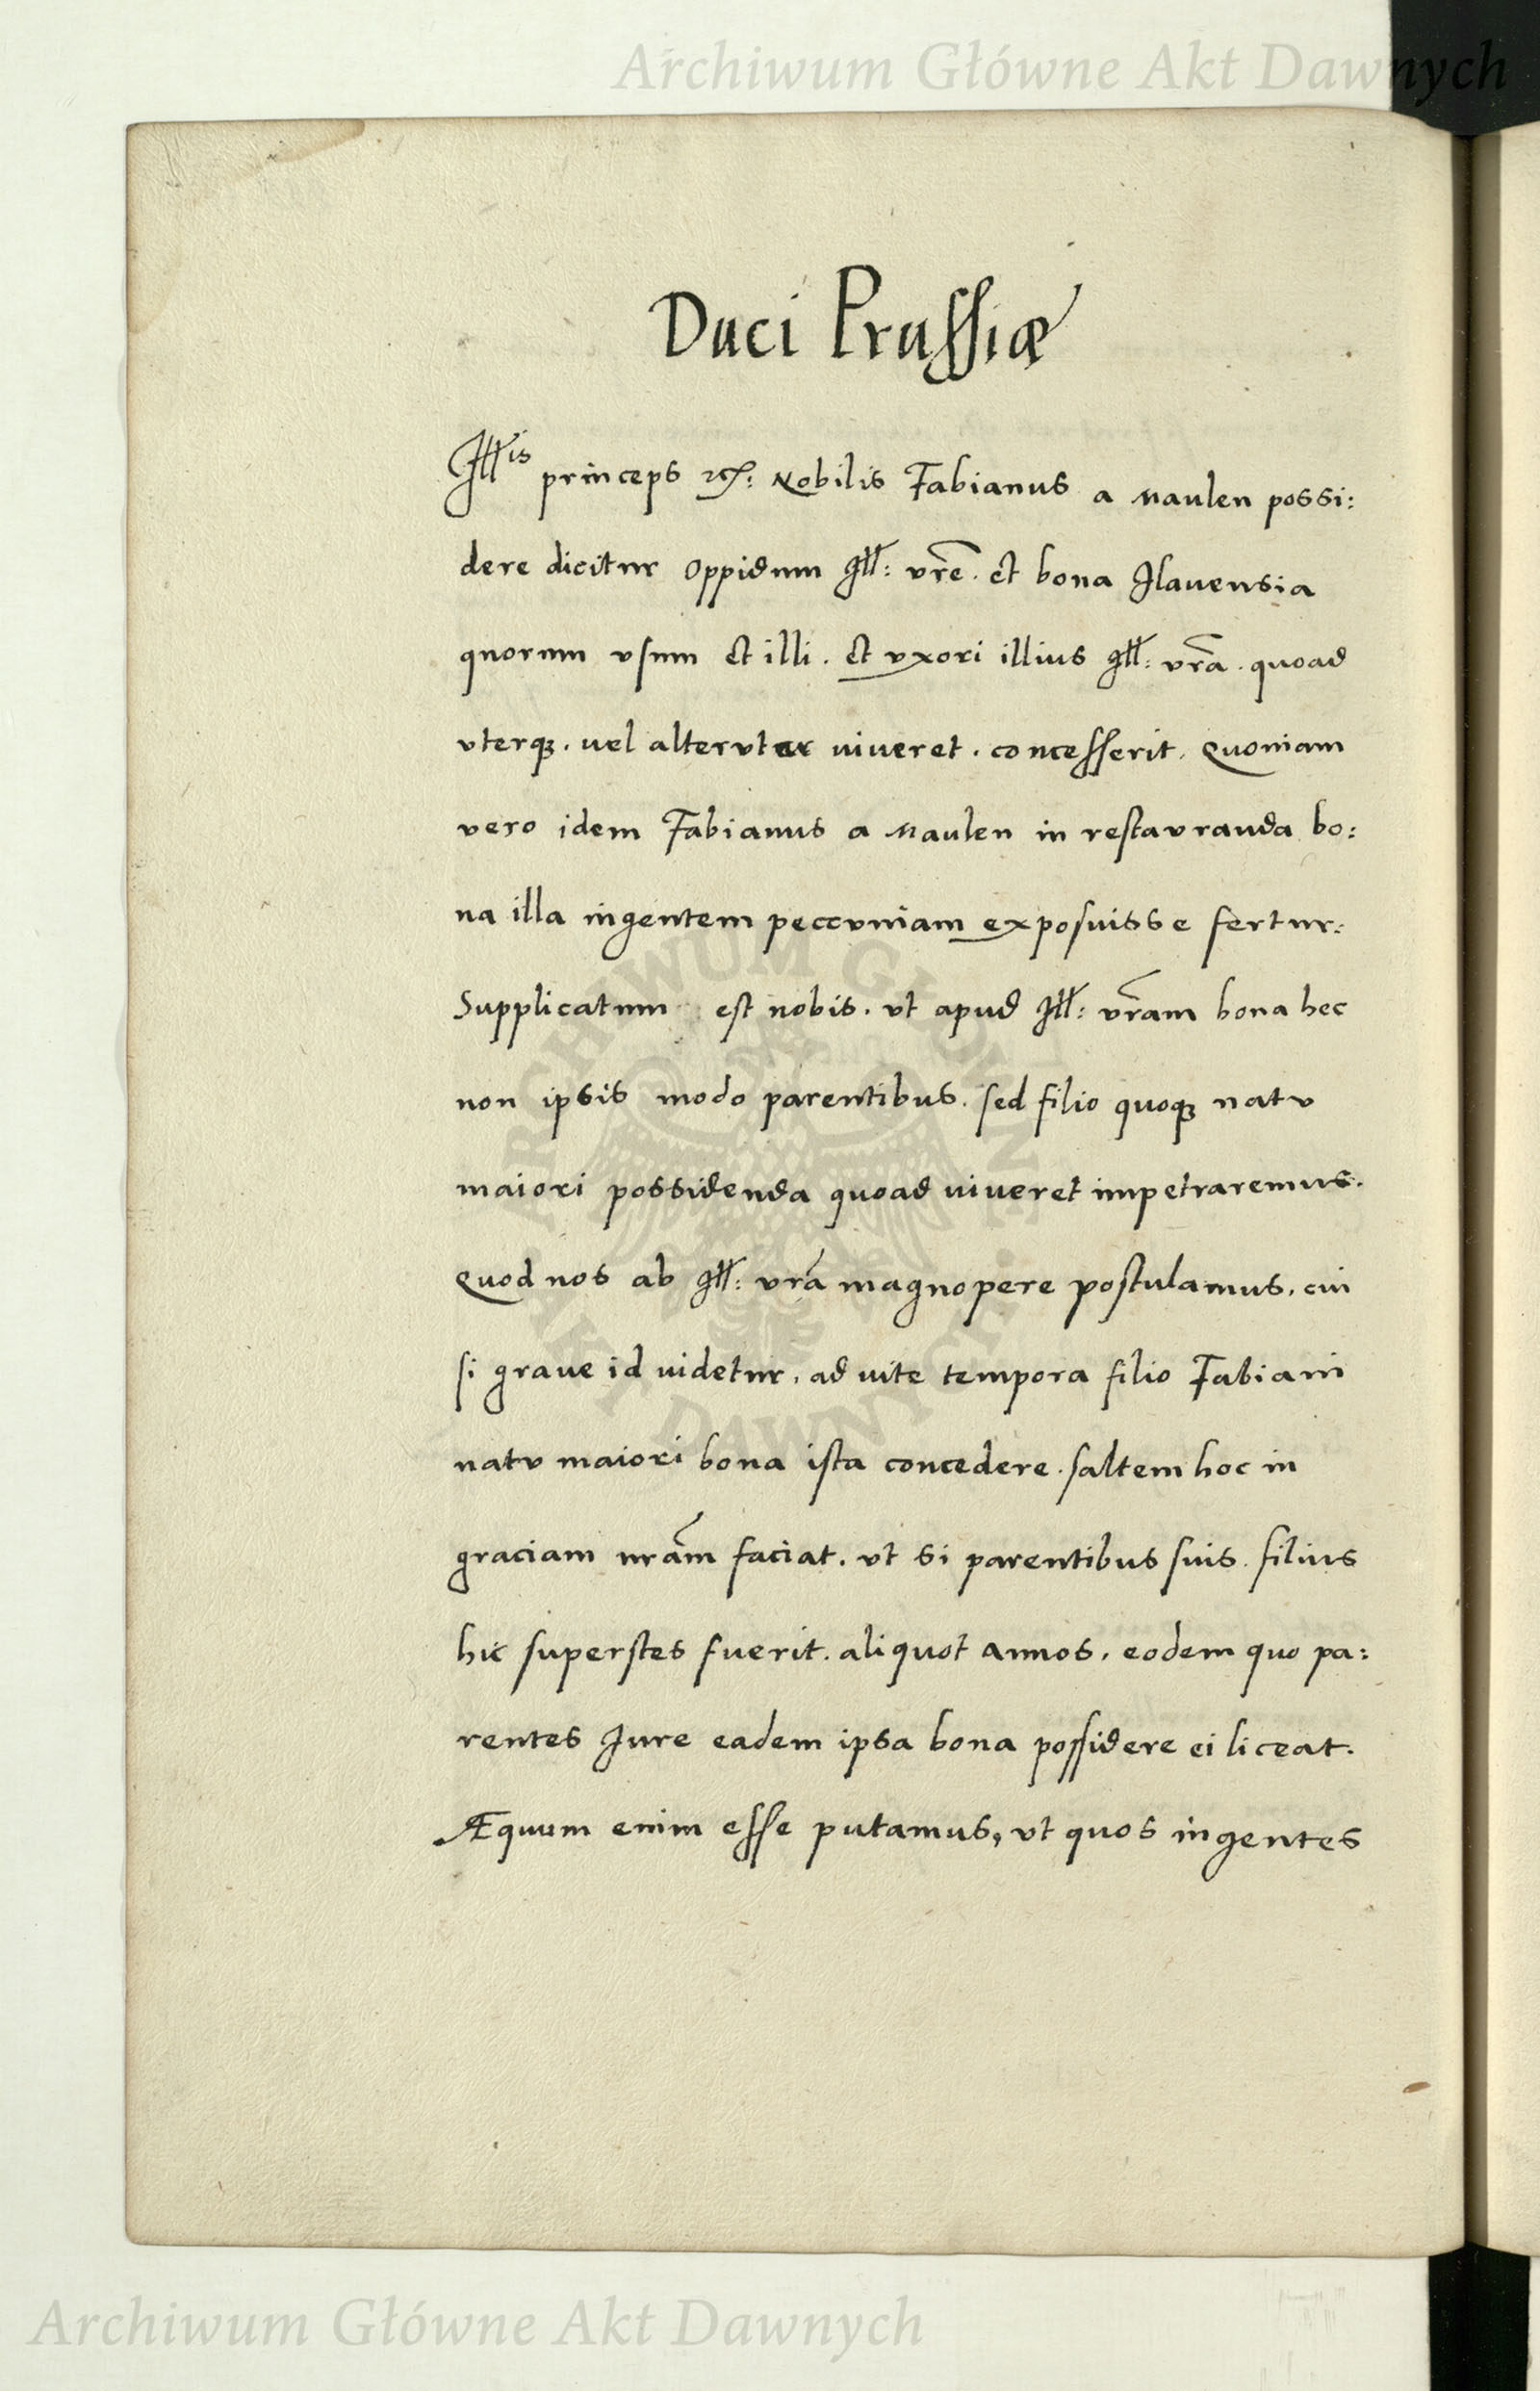 Archiwum Główne Akt Dawnych
Duci Prussiæ
Illis princeps etc: Nobilis Fabianus a Maulen possi:
dere dicitur oppidum Ill: vre. et bona Ilauensia
quorum vsum et illi. et vxori illius Ill: vra. quoad
vterq3. uel alteruter uiueret. concesserit. Quoniam
vero idem Fabianus a Maulen in restauranda bo:
na illa ingentem peccuniam exposuisse fertur:
Supplicatum est nobis. vt apud Ill: vram bona hec
non ipsis modo parentibus. sed filio quoq3 natu
maiori possidenda quoad uiueret impetraremus.
Quod nos ab Ill: vra magnopere postulamus, cui
si graue id uidetur, ad uite tempora filio Fabiani
natu maiori bona ista concedere. saltem hoc in
graciam nram faciat. vt si parentibus suis. filius
hic superstes fuerit. aliquot annos, eodem quo pa:
rentes Iure eadem ipsa bona possidere ei liceat.
Æquum enim esse putamus, vt quos ingentes
ARCHIWUM GŁÓWNE
AKT DAWNYCH
Archiwum Główne Akt Dawnych